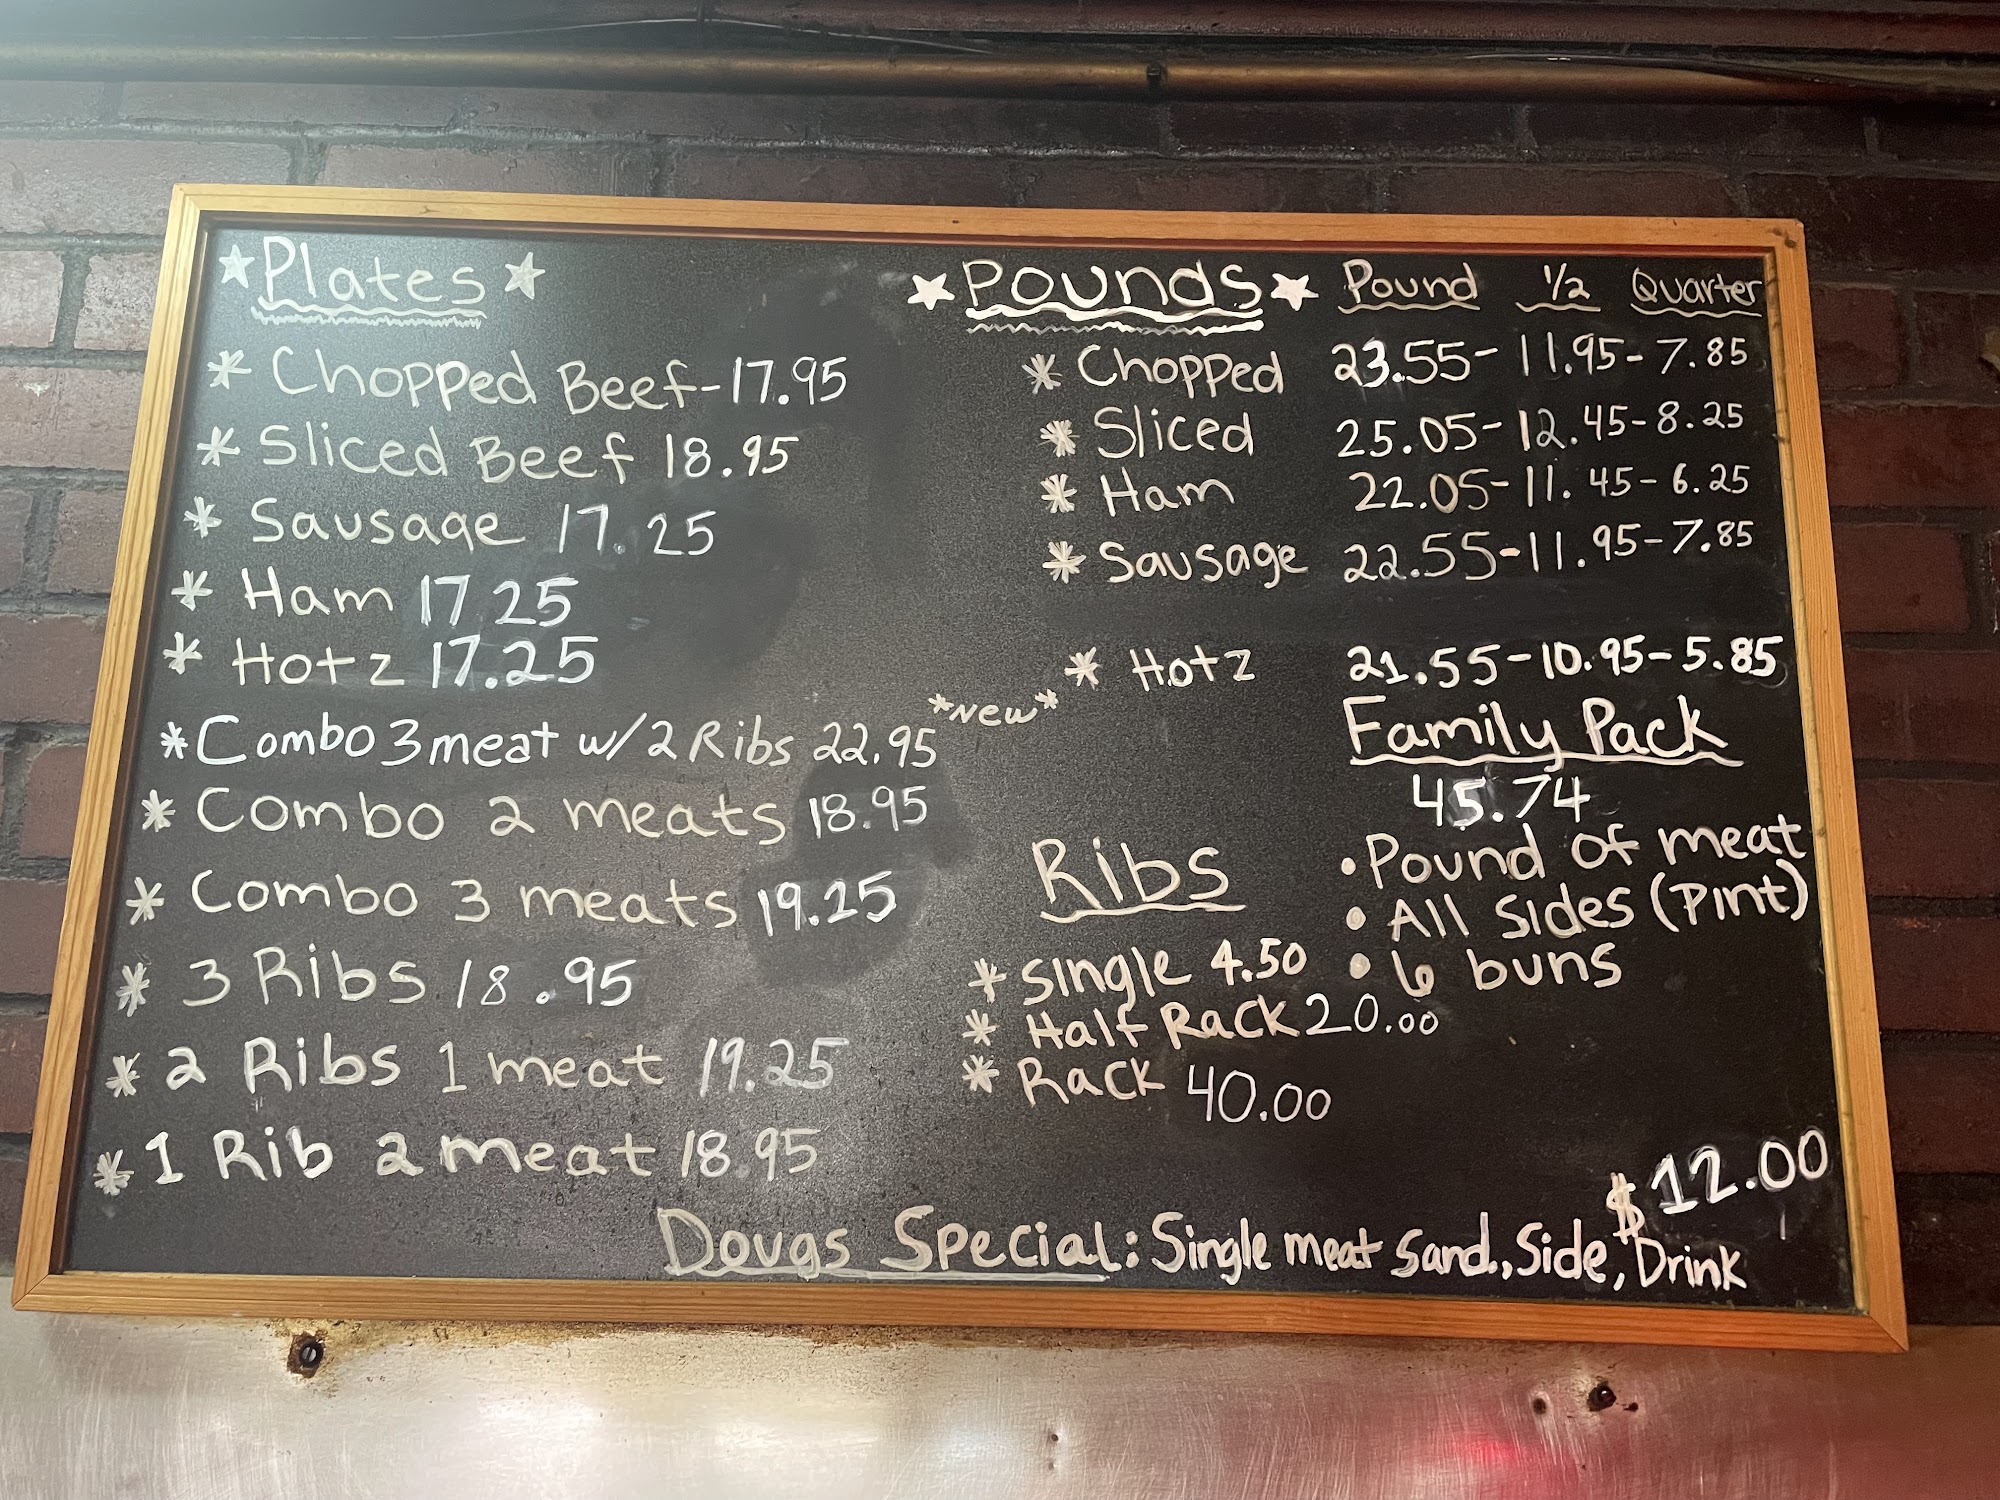 *Plates*
* Chopped Beef-17.95
* Sliced Beef 18.95
* Sausage 17.25
* Ham 17.25
* Hotz 17.25
*Combo 3 meat w/2 Ribs 22.95 *New*
* Combo 2 meats 18.95
* Combo 3 meats 19.25
* 3 Ribs 18.95
* 2 Ribs 1 meat 19.25
*1 Rib 2 meat 18.95
*Pounds* Pound 1/2 Quarter
* Chopped 23.55-11.95-7.85
* Sliced 25.05-12.45-8.25
* Ham 22.05-11.45-6.25
* Sausage 22.55-11.95-7.85
* Hotz 21.55-10.95-5.85
Family Pack
45.74
• Pound of meat
• All sides (Pint)
• 6 buns
Ribs
* Single 4.50
* Half Rack 20.00
* Rack 40.00
$12.00
Dougs Special: Single meat Sand., Side, Drink